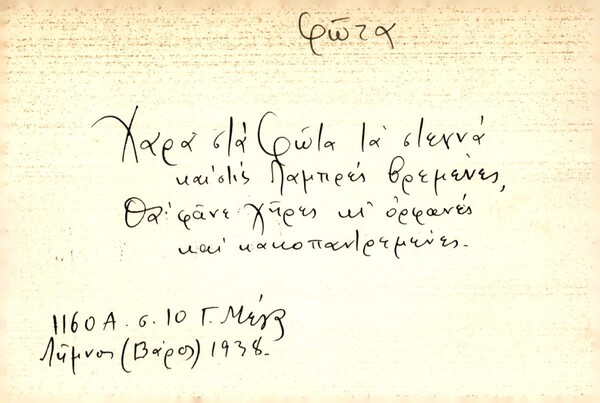 Φῶτα
Χαρὰ στὰ Φῶτα τὰ στεγνὰ
καὶ στὶς Λαμπρὲς βρεμένες,
Θὰ φᾶνε χῆρες κι' ὀρφανὲς
καὶ κακοπαντρεμένες.
1160 Α. σ. 10 Γ. Μέγα
Λῆμνος (Βάρος) 1938.